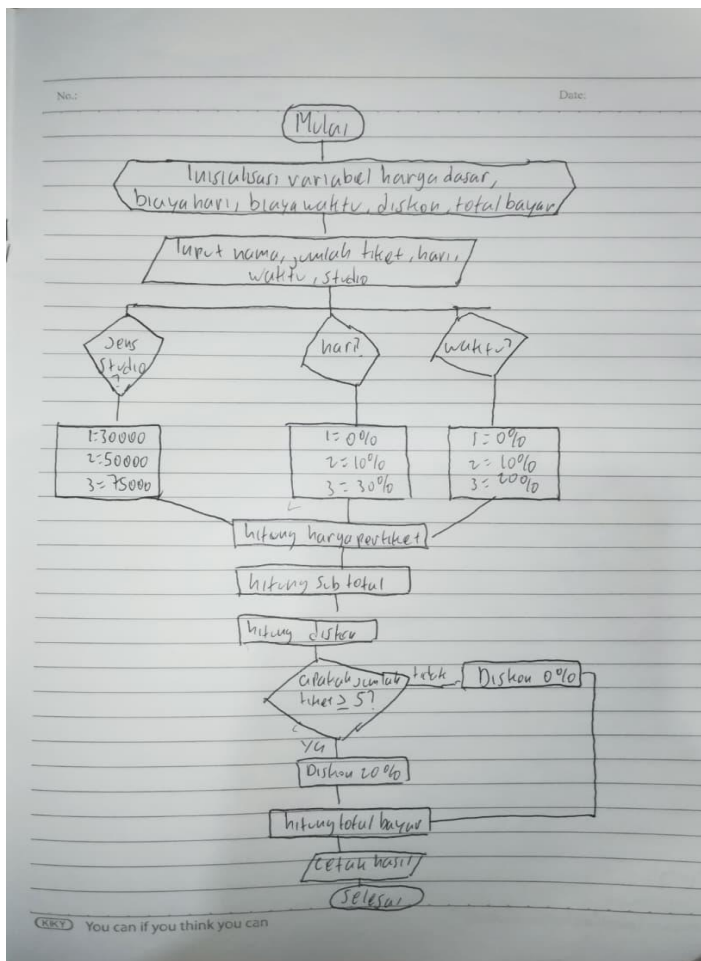 No.:
Date:
Mulai
Inisialisasi variabel harga dasar,
biaya hari, biaya waktu, diskon, total bayar
Input nama, jumlah tiket, hari,
waktu, studio
Jens
studio
?
hari?
waktu?
1=30000
2=50000
3=75000
1=0%
2=10%
3=30%
1=0%
2=10%
3=20%
hitung harga pertiket
hitung sub total
hitung diskon
apakah jumlah
tiket ≥ 5?
tidak
Diskon 0%
Ya
Diskon 20%
hitung total bayar
cetak hasil
selesai
KIKY You can if you think you can